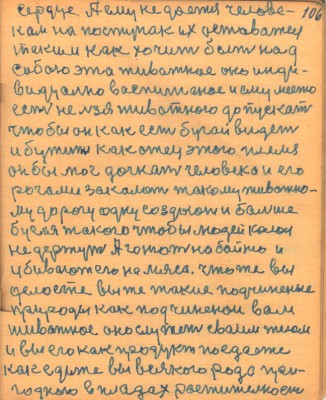 106
сердце А ему не дается челове-
кам на поступак их оставатся
таким как хочит быть над
собою эта тиватное оно инди-
видуално воспитаное и ему место
есть нелзя животного допускать
чтобы он как есть бугай видеть
и бутит как отец этого племя
он бы мог догнать человека и его
рогами заколот такому животно-
му дорогу одну создают и больше
бугая такого чтобы людей колол
не держут А готют на бойню и
убивают его на мяса. что же вы
делаете вы же такие подчиненые
природы как подчиненои вам
животное оно служеть своим телом
и вы его как продукт поедаете
как едите вы всякого рода при-
годного в плодах растителности